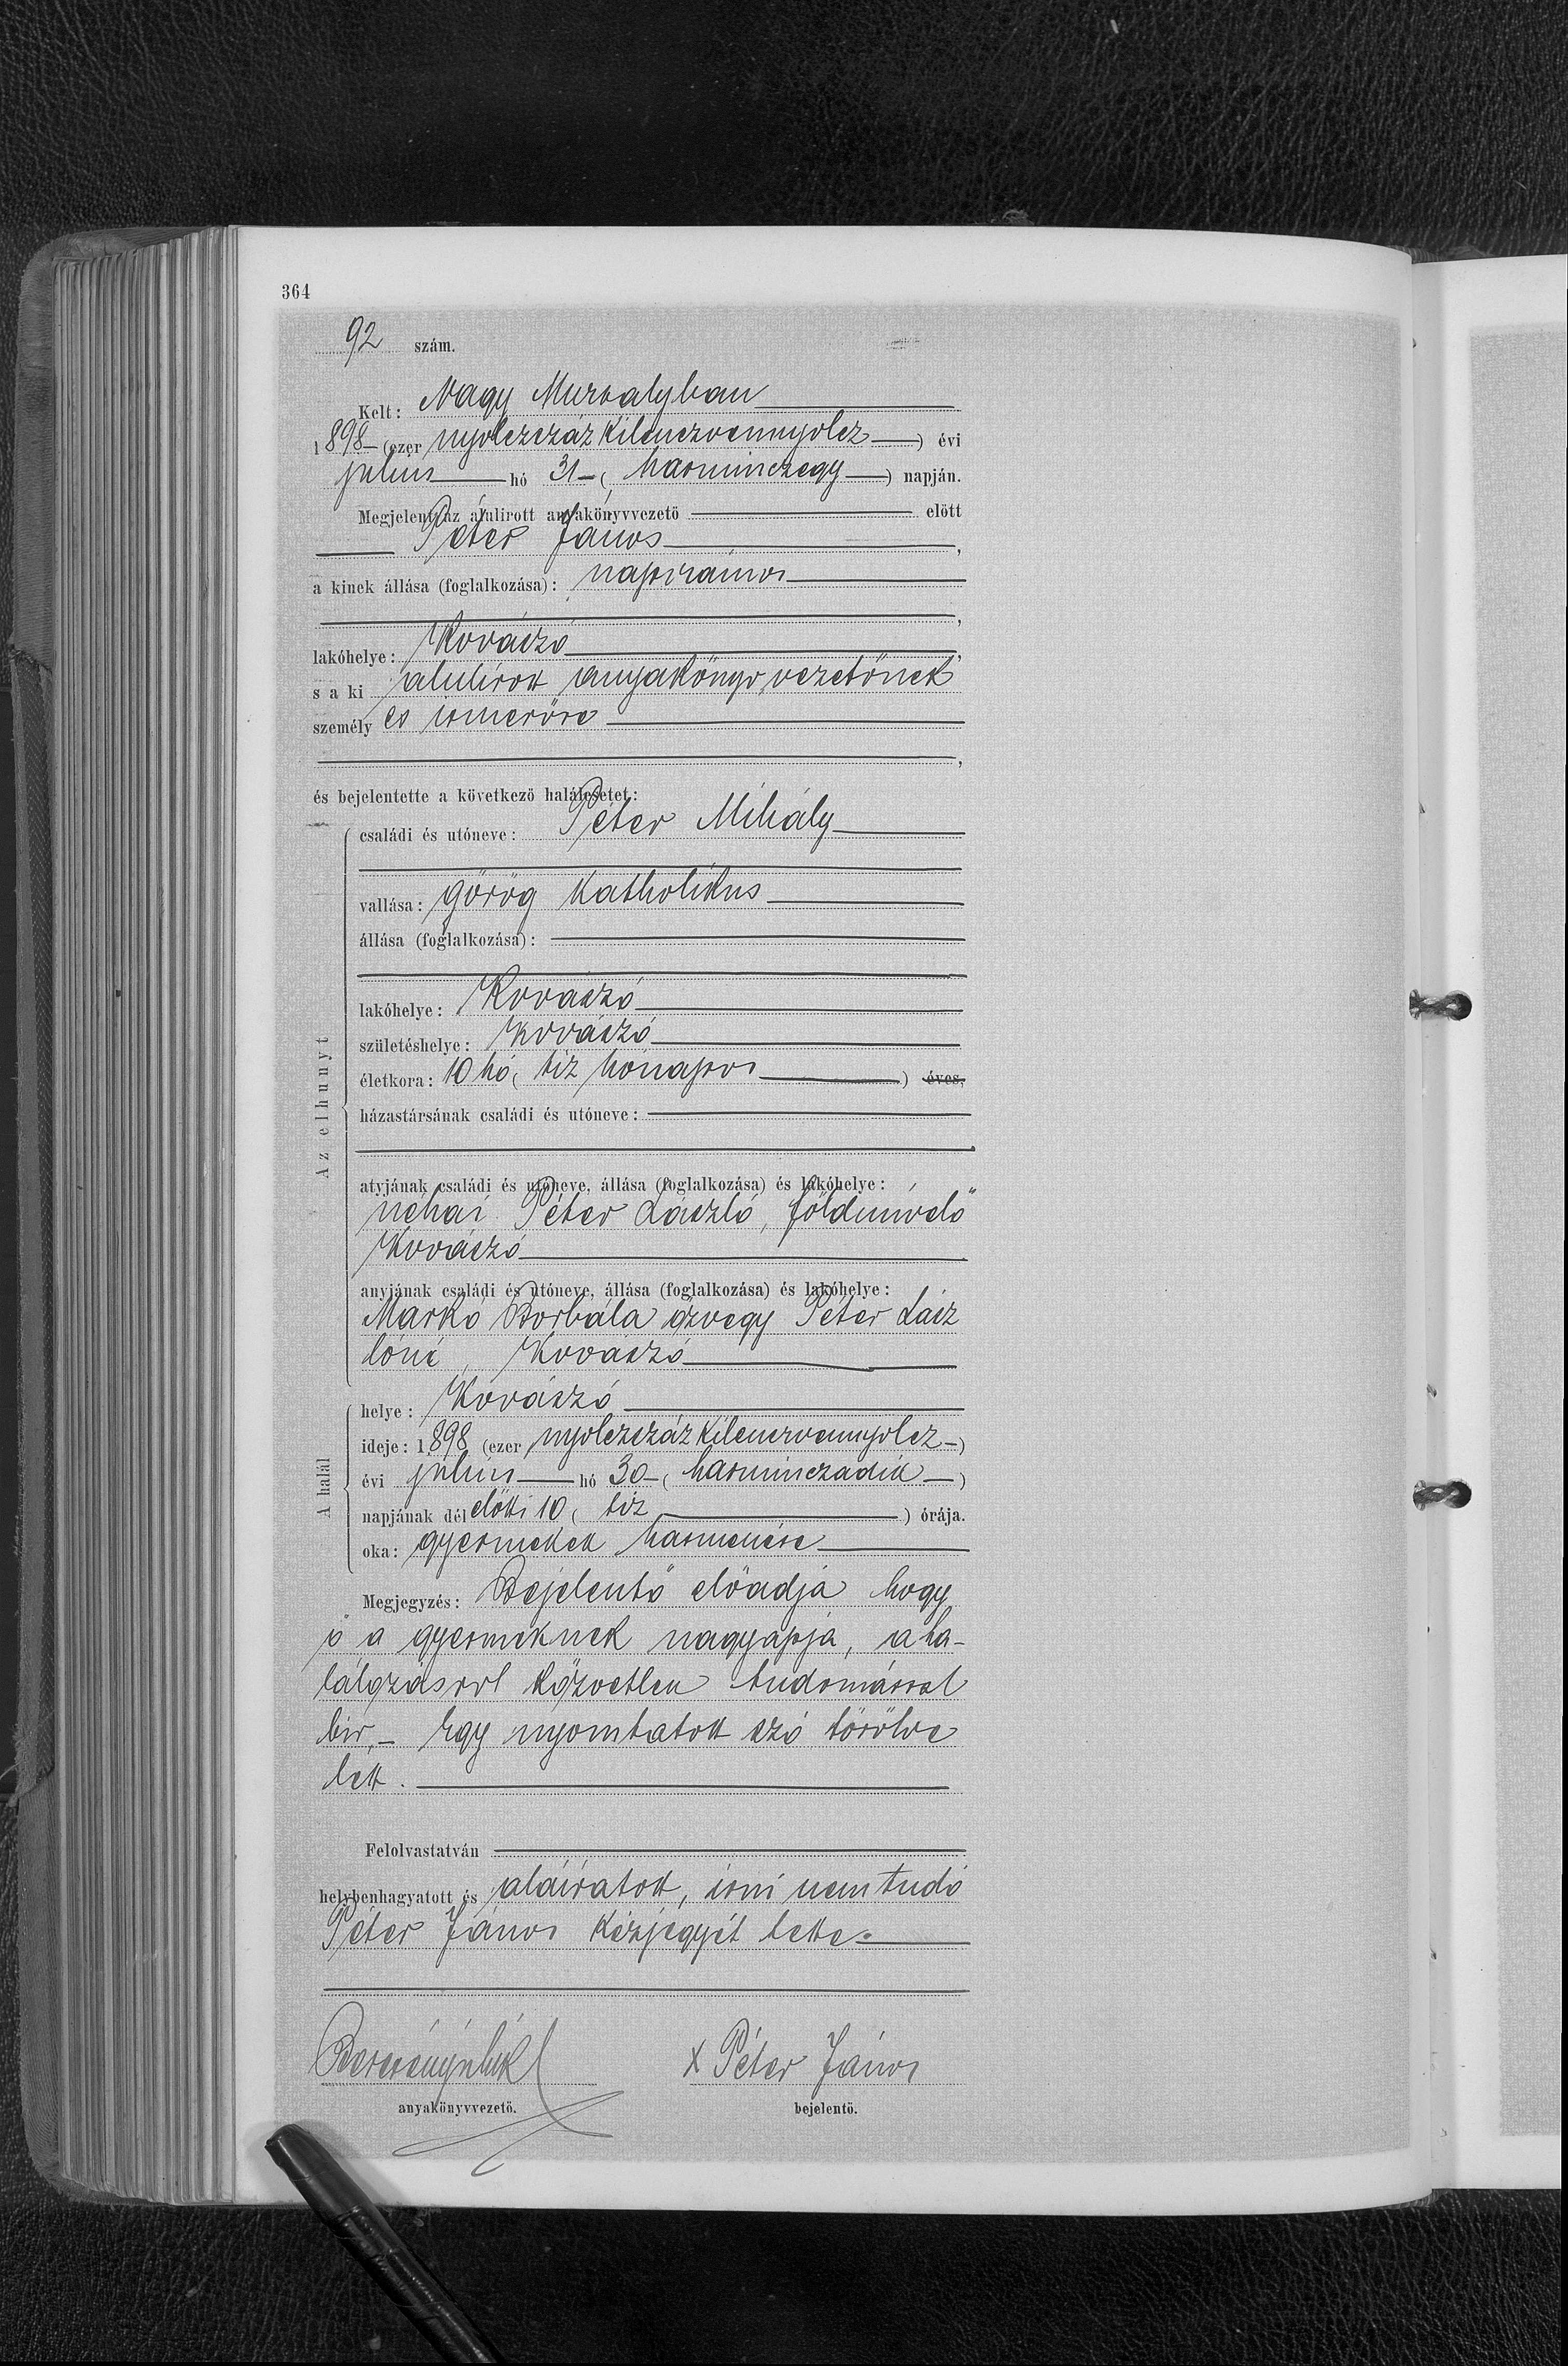 364
92 szám.
Kelt: Nagy Muzsalyban
1898 - (ezer nyolczszáz kilenczvennyolcz ) évi
julius hó 31 - ( harminczegy ) napján.
Megjelent az alulirott anyakönyvvezető előtt
Péter János ,
a kinek állása (foglalkozása): napszámos
,
lakóhelye: Kovászó ,
s a ki alulirott anyakönyvvezetőnek
személyes ismerőse
,
és bejelentette a következő halálesetet:
Az elhunyt
családi és utóneve: Péter Mihály
vallása: görög katholikus
állása (foglalkozása):
lakóhelye: Kovászó
születéshelye: Kovászó
életkora: 10 hó ( tiz hónapos ) éves,
házastársának családi és utóneve:
atyjának családi és utóneve, állása (foglalkozása) és lakóhelye:
néhai Péter László, földmüvelő
Kovászó
anyjának családi és utóneve, állása (foglalkozása) és lakóhelye:
Markó Borbála özvegy Péter Lász
lóné, Kovászó
A halál
helye: Kovászó
ideje: 1898 (ezer nyolczszáz kilenczvennyolcz - )
évi julius hó 30 - ( harminczadik - )
napjának dél előtti 10 ( tiz ) órája.
oka: gyermekek hasmenése
Megjegyzés: Bejelentő előadja hogy
ő a gyermeknek nagyapja, a ha-
lálozásról közvetlen tudomással
bir. - Egy nyomtatott szó törölve
lett.
Felolvastatván
helybenhagyatott és aláiratott, irni nem tudó
Péter János kézjegyét tette.
x Péter János
anyakönyvvezető. bejelentő.